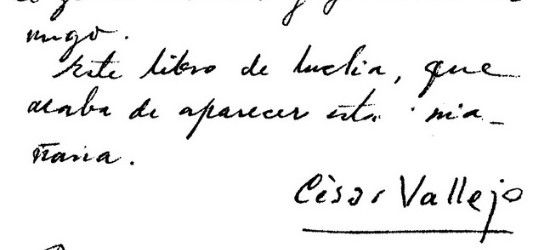 migo.
Este libro de lucha, que
acaba de aparecer esta ma-
ñana.
César Vallejo